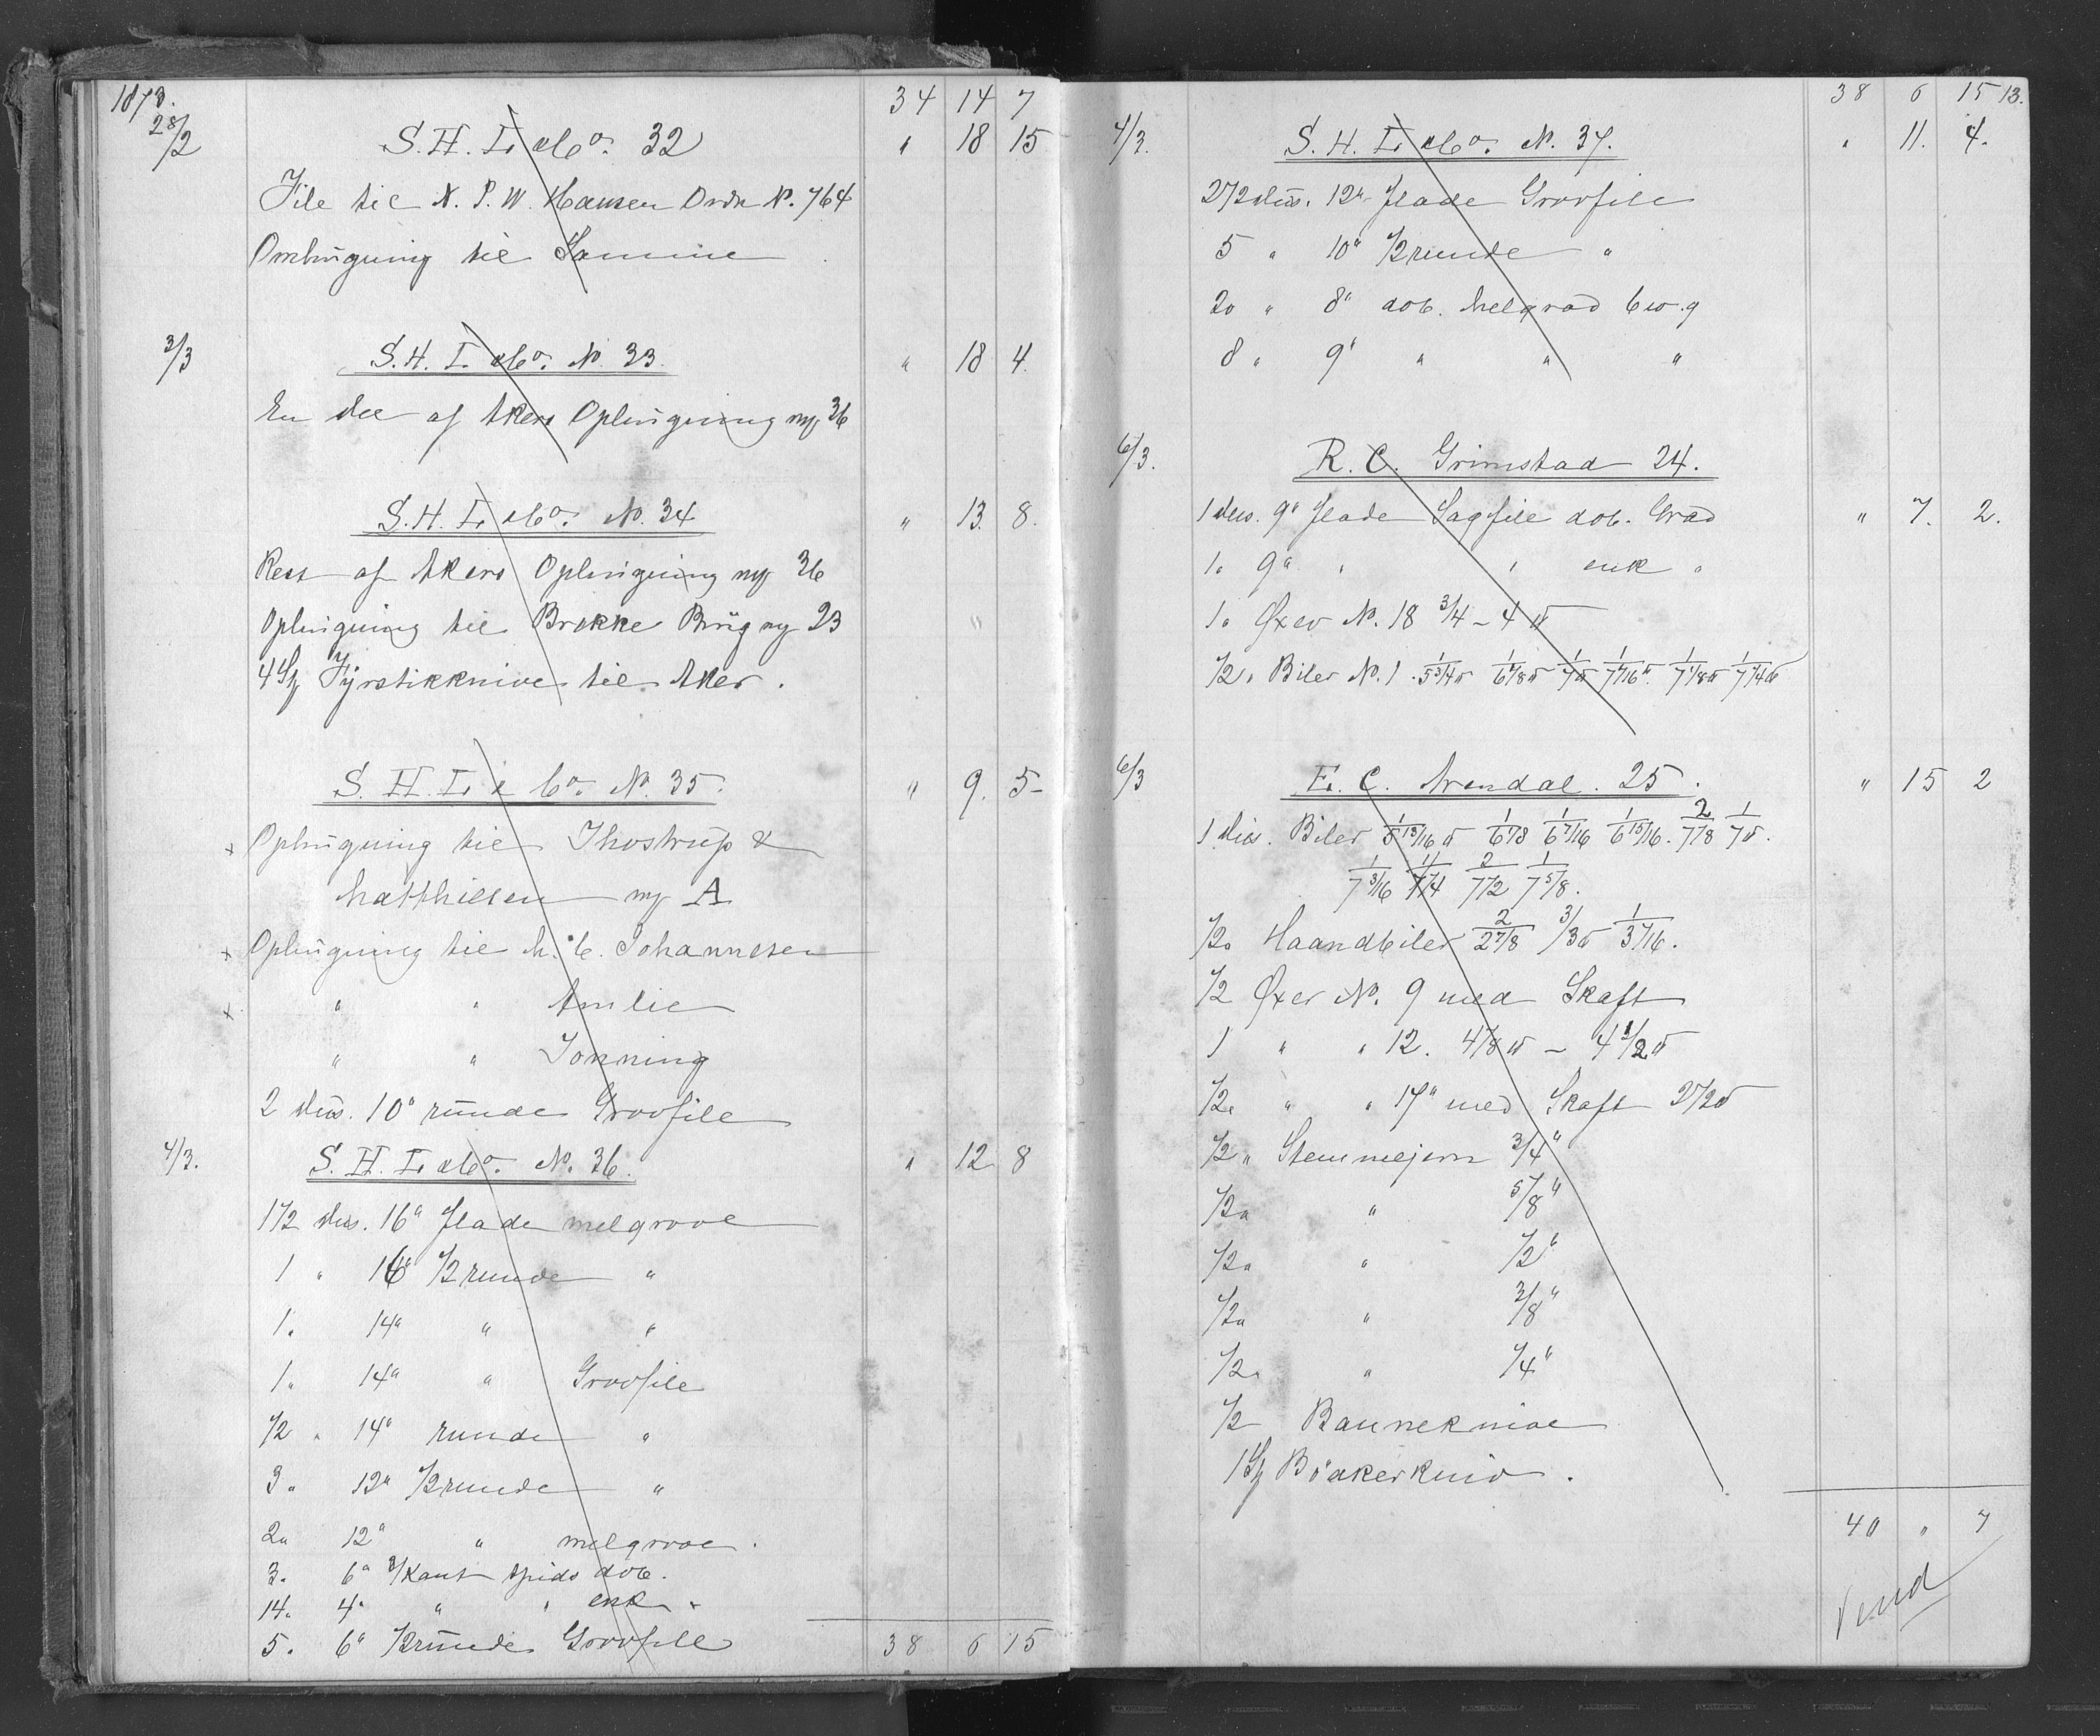 1873. 34 14 7
28/2 S. H. L. & Co. 32 " 18 15
File til N. P. W. Hansen Ordr No. 764
Omhugning til Samme
3/3 S. H. L. & Co. No. 33. " 18 4.
En del af Akers Ophugning mrk 36
S. H. L. & Co. No. 34 " 13. 8.
Rest af Akers Ophugning mrk 36
Ophugning til Brekke Brug mrk 23
4 St Fyrstikknive til Aker.
S. H. L. & Co. No. 35. " 9. 5
x Ophugning til Thostrup &
Matthiesen mrk A
x Ophugning til M. C. Johannesen
x " " Amlie
" " Jonning
2 dus. 10" runde Groofile
4/3. S. H. L. & Co. No. 36. " 12 8
1 1/2 dus. 16" flade melgrove
1 " 16" 1/2 runde "
1 " 14" " "
1 " 14" " Groofile
1/2 " 14" runde "
3 " 12" 1/2 runde "
2 " 12" " melgrove.
3 " 6" 3/kant spids dob.
14 " 4" " " enk "
5 " 6" 1/2 runde Groofile 38 6 15
38 6 15 13.
4/3. S. H. L. & Co. No. 37. " 11. 4.
2 1/2 dus. 12" flade Groofile
5 " 10" 1/2 runde "
20 " 8" dob. Melgrad
8 " 9" " " "
6/3. R. C. Grimstad 24.
1 dus. 9" flade Sagfile dob. Grad " 7. 2.
1 " 9" " " enk "
1 " Øxer No. 18 3/4 - 4 ℔
1/2 " Biler No. 1. 1/5 3/4 ℔ 1/6 7/8 ℔ 1/7 ℔ 1/7 1/16 ℔ 1/7 1/8 ℔ 1/7 1/4 ℔
6/3 E. C. Arendal. 25. " 15 2
1 dus. Biler 1/5 13/16 ℔ 1/6 7/8 1/6 7/16 1/6 15/16. 2/7 1/8 1/7 ℔.
1/7 3/16 11/7 1/4 2/7 1/2 1/7 5/8.
1/2 " Haandbiler 2/2 7/8 3/3 ℔ 1/3 1/16.
1/2 Øxer No. 9 med Skaft
1 " " 12. 4 1/8 ℔ - 4 1/2 ℔
1/2 " " " 17" med Skaft 2 1/2 ℔
1/2 " Stemmejern 3/4"
1/2 " " 5/8"
1/2 " " 1/2"
1/2 " " 3/8"
1/2 " " 1/4"
1/2 Bauneknive
1 St Bödkerkniv.
40 " 7
Vend